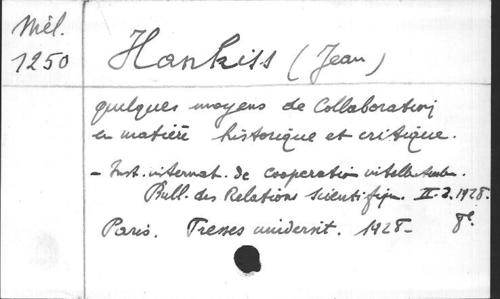 Mél.
1250
Hankiss (Jean)
quelques moyens de Collaboration
en matière historique et critique.
- Inst. internat. de cooperation intellectuelle.
Bull. des Relations scientifiq. II. 3. 1928.
Paris. Presses universit. 1928- 8º.